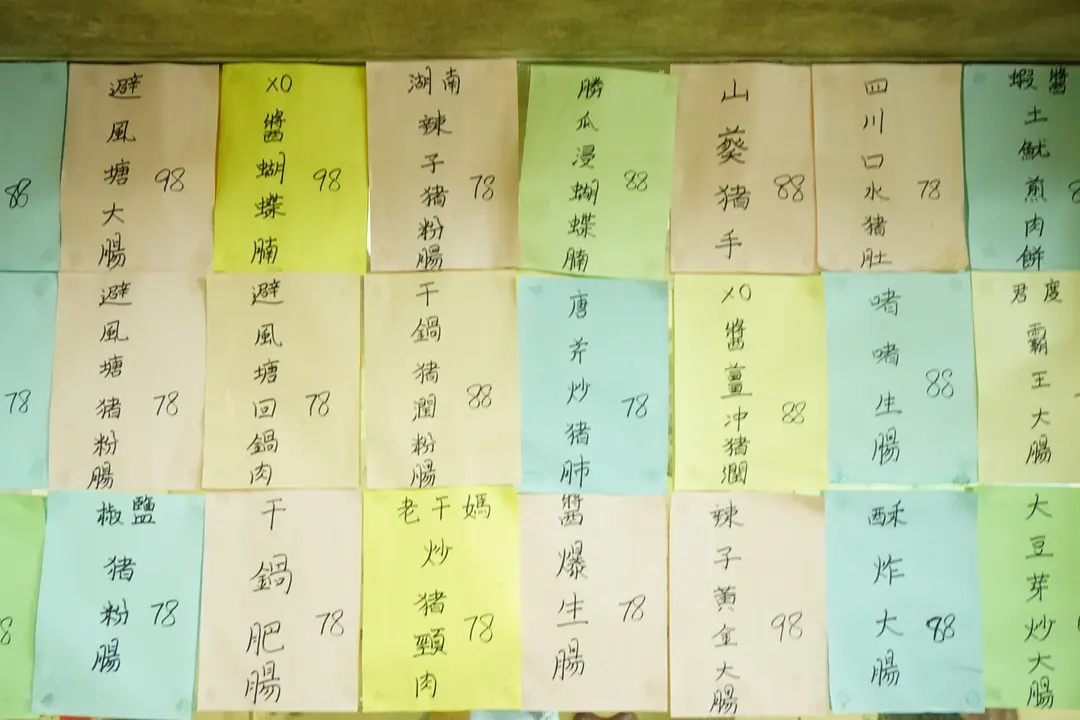 88
避風塘大腸
98
XO醬蝴蝶腩
98
湖南辣子猪粉腸
78
勝瓜浸蝴蝶腩
88
山葵猪手
88
四川口水猪肚
78
蝦醬土魷煎肉餅
78
避風塘猪粉腸
78
避風塘回鍋肉
78
干鍋猪潤粉腸
88
唐芹炒猪肺
78
XO醬薑冲猪潤
88
啫啫生腸
88
君度霸王大腸
椒鹽猪粉腸
78
干鍋肥腸
78
老干媽炒猪頸肉
78
醬爆生腸
78
辣子黄金大腸
98
酥炸大腸
98
大豆芽炒大腸